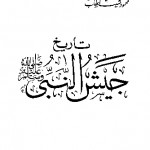 تاریخ
جَیشُ النَّبِیّ
ﷺ